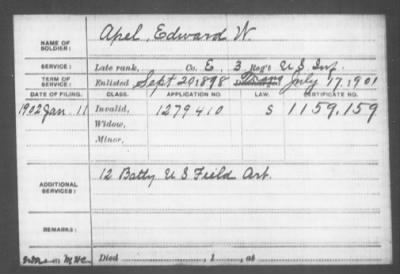 NAME OF SOLDIER: Apel, Edward W.
SERVICE: Late rank, Co. E 3 Reg't U S Inf.
TERM OF SERVICE: Enlisted Sept 20, 1898 July 17, 1901
DATE OF FILING. CLASS. APPLICATION NO. LAW. CERTIFICATE NO.
1902 Jan. 11 Invalid, 1279410 S 1159,159
Widow,
Minor,
ADDITIONAL SERVICES: 12 Batty U S Field Art.
REMARKS:
Died , 1 , at